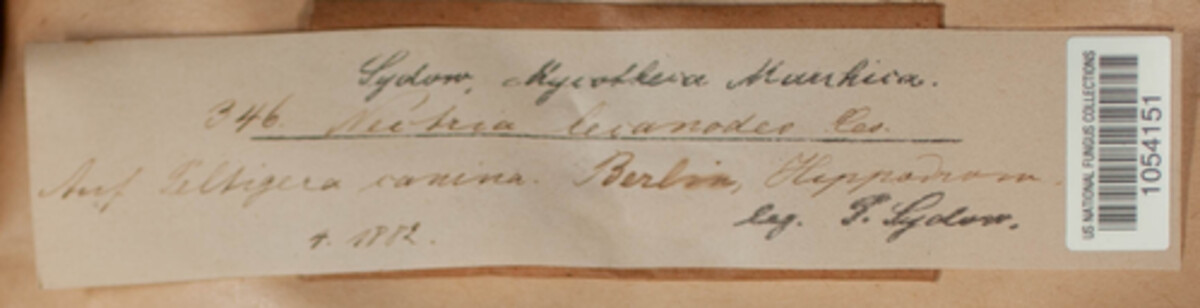 Sydow, Mycotheca Marchica.
346. Nectria lecanodes Ces.
Auf Peltigera canina. Berlin, Hippodrom.
4. 1882.
leg. P. Sydow.
US NATIONAL FUNGUS COLLECTIONS
1054151